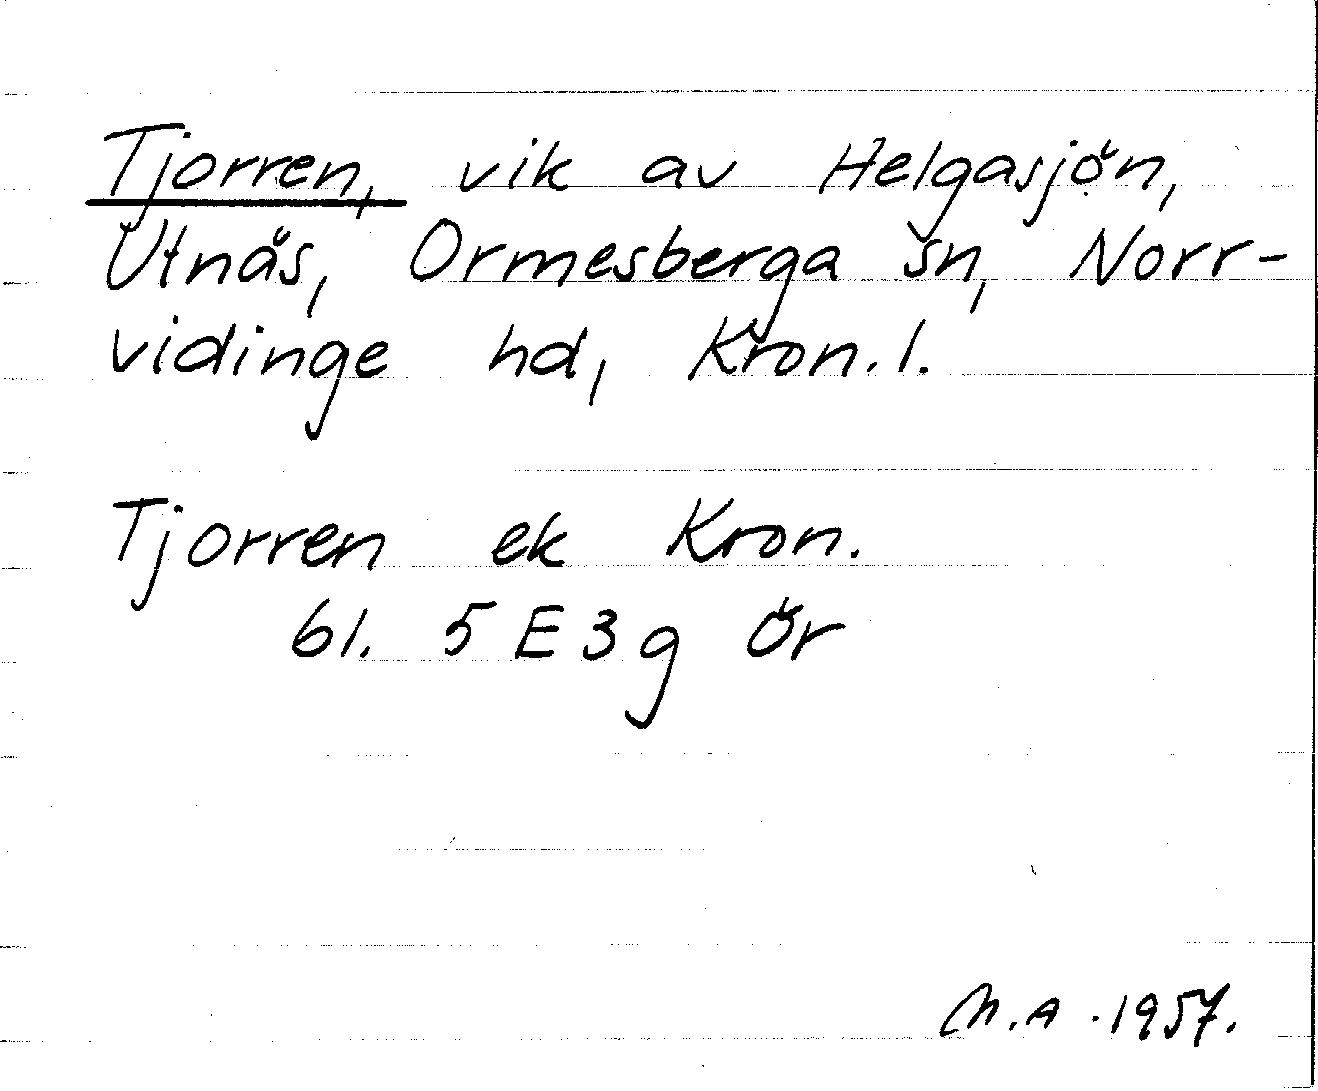 Tjorren, vik av Helgasjön,
Utnäs, Ormesberga sn, Norr-
vidinge hd, Kron. l.
Tjorren ek Kron.
bl. 5 E 3 g Ör
M.A. 1957.